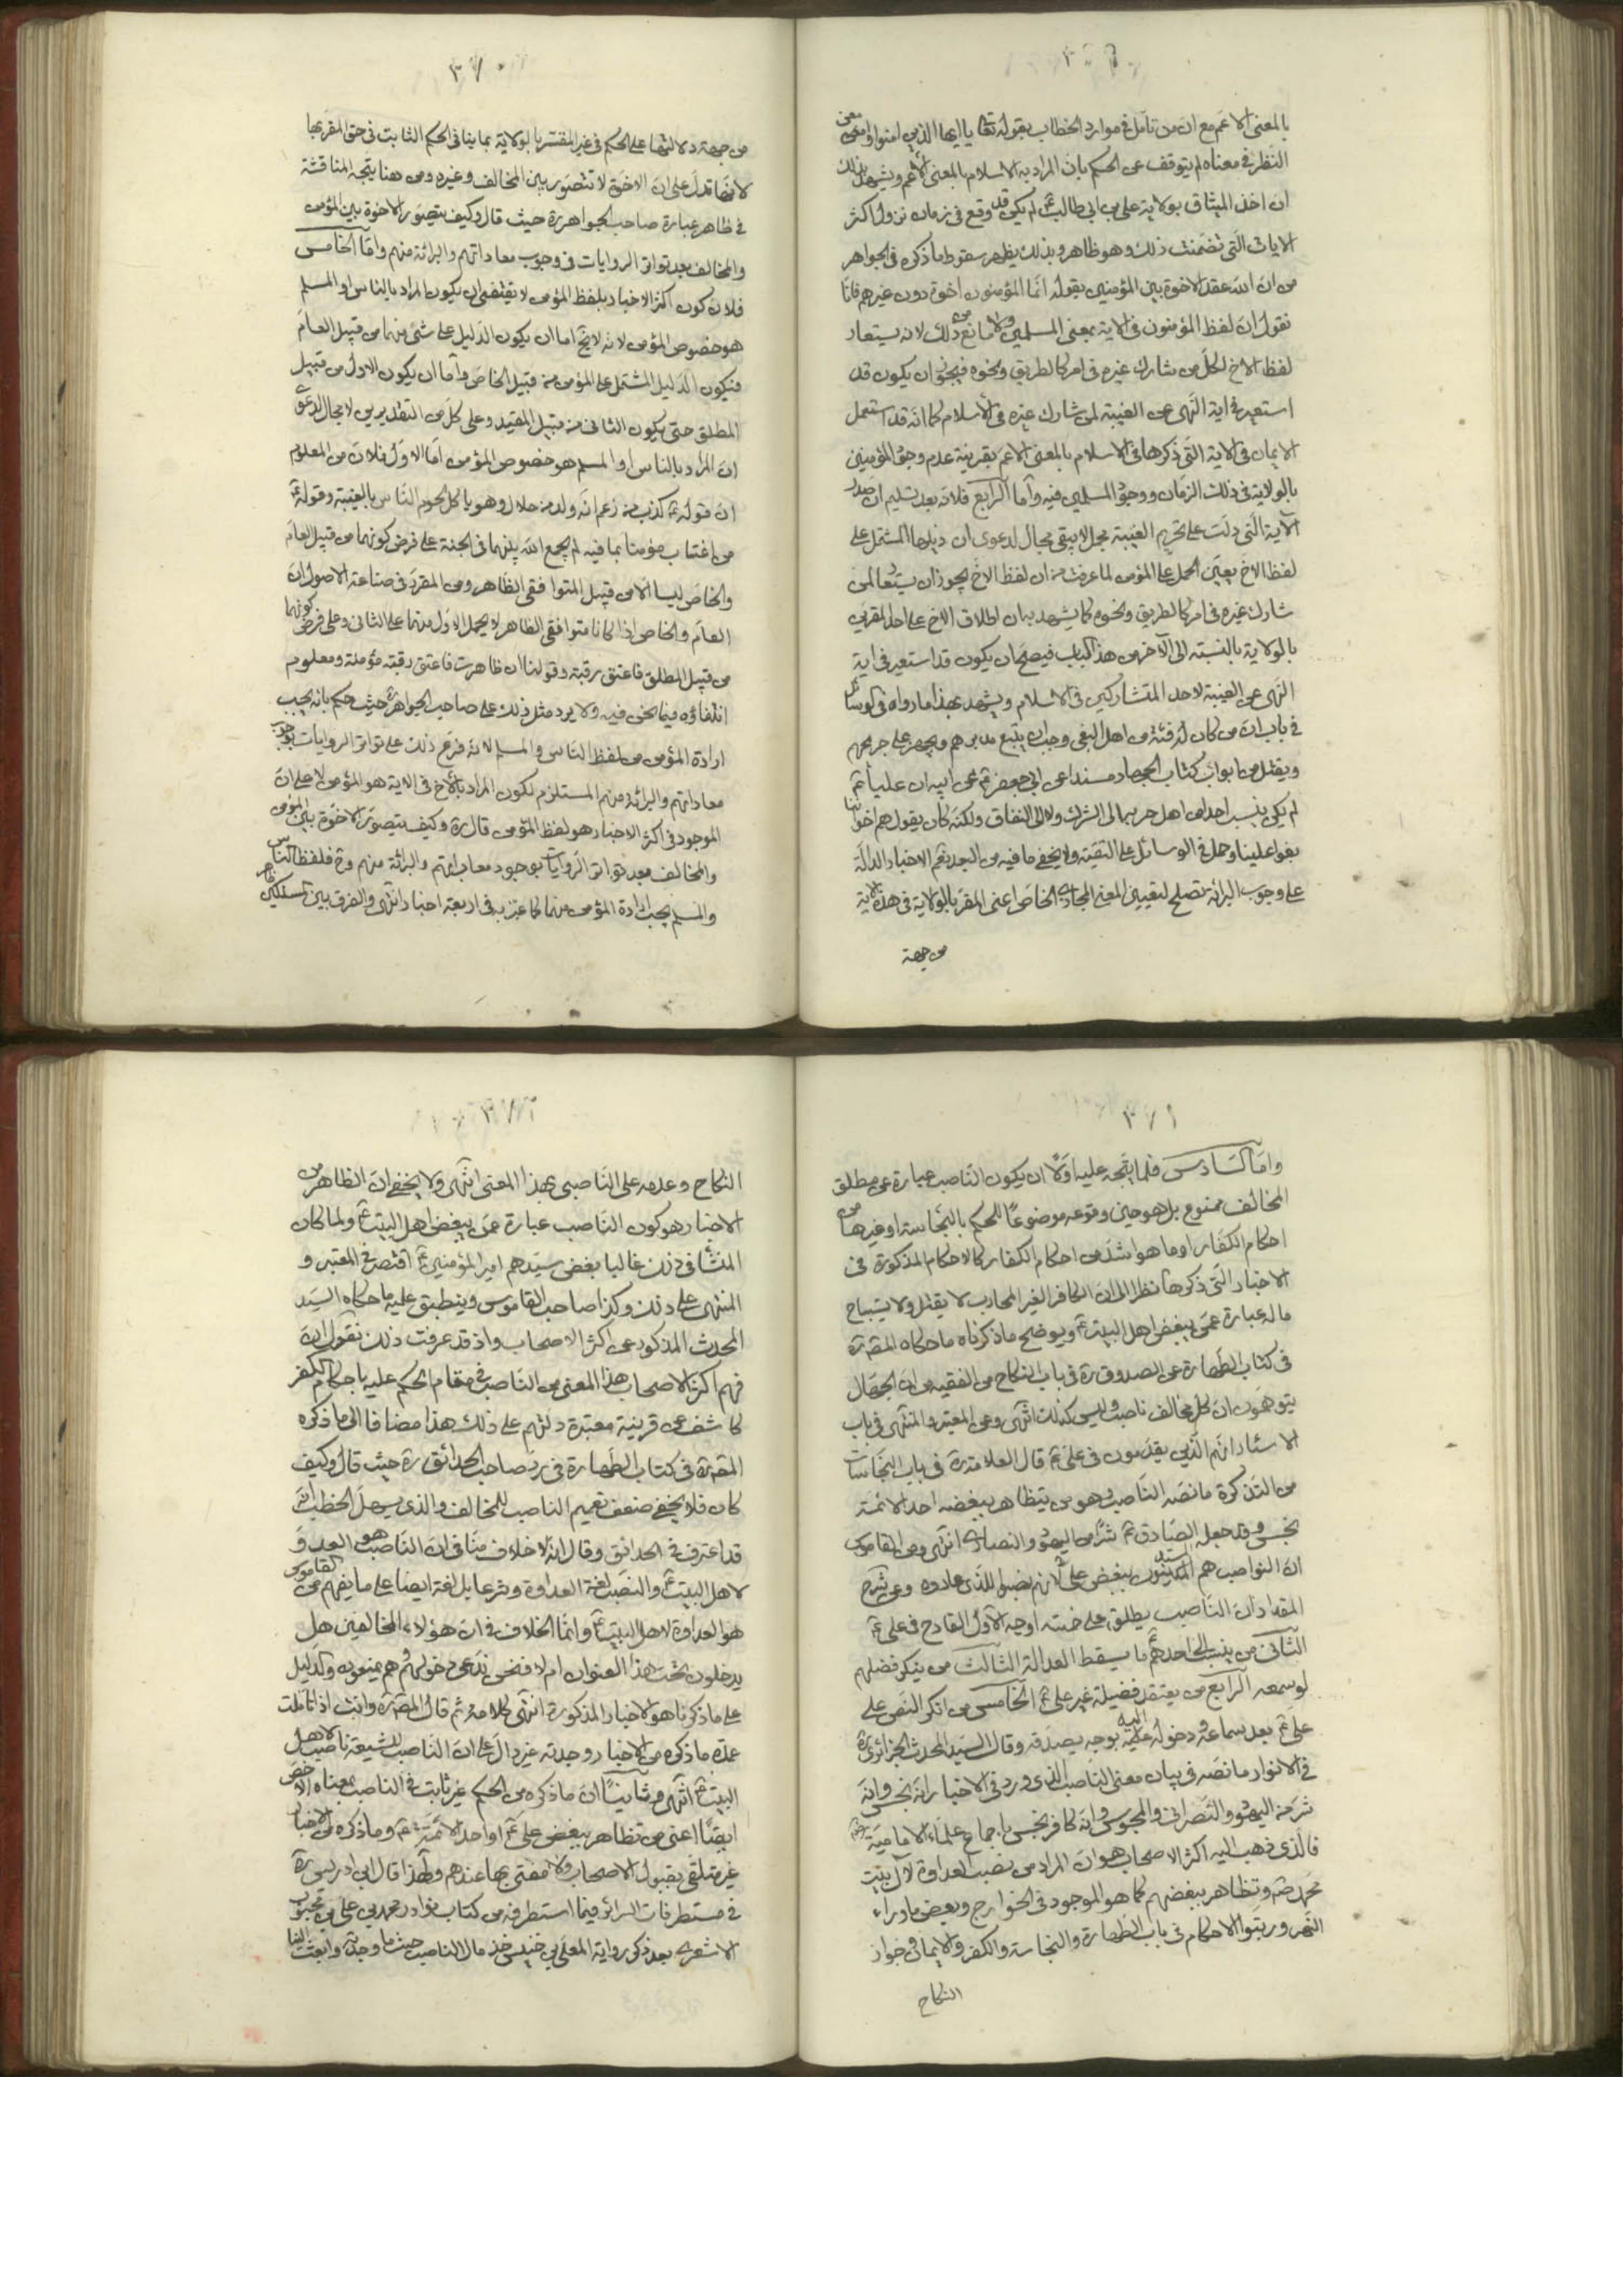 ٣٦٩
بالمعنى الاعم مع ان من تامل في موارد الخطاب بقوله تعا يا ايها الذين امنوا وامعن
النظر في معناه لم يتوقف عن الحكم بان المراد به الاسلام بالمعنى الاعم ويشهد بذلك
ان اخذ الميثاق بولاية علي بن ابي طالب ع لم يكن قد وقع في زمان نزول اكثر
الايات التي تضمنت ذلك وهو ظاهر وبذلك يظهر سقوط ما ذكره في الجواهر
من ان الله عقد الاخوة بين المؤمنين بقوله انما المؤمنون اخوة دون غيرهم فانا
نقول ان لفظ المؤمنون في الاية بمعنى المسلمين ولا مانع من ذلك لانه يستعار
لفظ الاخ لكل من شارك غيره في امر كالطريق ونحوه فيجوز ان يكون قد
استعير في اية النهى عن الغيبة لمن شارك غيره في الاسلام كما انه قد استعمل
الايمان في الاية التي ذكرها في الاسلام بالمعنى الاعم بقرينة عدم وجود المؤمنين
بالولاية في ذلك الزمان ووجود المسلمين فيه واما الرابع فلانه بعد تسليم ان صدر
الآية التي دلت على تحريم الغيبة مجمل لا يبقى مجال لدعوى ان ذيلها المشتمل على
لفظ الاخ يعين الحمل على المؤمن لما عرفت من ان لفظ الاخ يجوز ان يستعار لمن
شارك غيره في امر كالطريق ونحوه كما يشهد به ان اطلاق الاخ على احد المقرين
بالولاية بالنسبة الى الآخر من هذا الباب فيصح ان يكون قد استعير في اية
النهى عن الغيبة لاحد المتشاركين في الاسلام ويشهد بهذا ما رواه في الوسائل
في باب ان من كان له فئة من اهل البغى وجب ان يتبع مدبرهم ويجهز على جريحهم
ويقتل من ابواب كتاب الجهاد مسندا عن ابي جعفر ع عن ابيه ان عليا ع
لم يكن ينسب احدا من اهل حربه الى الشرك ولا الى النفاق ولكنه كان يقول هم اخواننا
بغوا علينا وحمل في الوسائل على التقية ولا يخفى ما فيه من البعد نعم الاخبار الدالة
على وجوب البرائة تصلح لتعيين المعنى المجازي الخاص اعنى المقر بالولاية في هذه الاية
من جهة
٣٧٠
من جهة دلالتها على الحكم في غير المقر بالولاية بما ينافي الحكم الثابت في حق المقر بها
لانها تدل على ان الاخوة لا تتصور بين المخالف وغيره ومن هنا يتجه المناقشة
في ظاهر عبارة صاحب الجواهر ره حيث قال وكيف يتصور الاخوة بين المؤمن
والمخالف بعد تواتر الروايات في وجوب معاداتهم والبرائة منهم واما الخامس
فلان كون اكثر الاخبار بلفظ المؤمن لا يقتضى ان يكون المراد بالناس او المسلم
هو خصوص المؤمن لانه لا يخ اما ان يكون الدليل على شئ منهما من قبيل العام
فيكون الدليل المشتمل على المؤمن من قبيل الخاص واما ان يكون الاول من قبيل
المطلق حتى يكون الثانى من قبيل المقيد وعلى كل من التقديرين لا مجال لدعوى
ان المراد بالناس او المسلم هو خصوص المؤمن اما الاول فلان من المعلوم
ان قوله ع كذب من زعم انه ولد من حلال وهو ياكل لحوم الناس بالغيبة وقوله ع
من اغتاب مؤمنا بما فيه لم يجمع الله بينهما في الجنة على فرض كونهما من قبيل العام
والخاص ليسا الا من قبيل المتوافقى الظاهر ومن المقرر في صناعة الاصول ان
العام والخاص اذا كانا متوافقى الظاهر لا يحمل الاول منهما على الثانى وعلى فرض كونهما
من قبيل المطلق فاعتق رقبة وقولنا ان ظاهرت فاعتق رقبة مؤمنة ومعلوم
انتفاؤه فيما نحن فيه ولا يرد مثل ذلك على صاحب الجواهر ره حيث حكم بانه يجب
ارادة المؤمن من لفظ الناس والمسلم لانه فرع ذلك على تواتر الروايات بوجوب
معاداتهم والبرائة منهم المستلزم لكون المراد بالاخ في الاية هو المؤمن لا على ان
الموجود في اكثر الاخبار هو لفظ المؤمن قال ره وكيف يتصور الاخوة بين المؤمن
والمخالف بعد تواتر الروايات بوجوب معاداتهم والبرائة منهم وح فلفظ الناس
والمسلم يجب ارادة المؤمن منهما كما عبر به في اربعة اخبار انتهى والفرق بين المسلكين ظاهر
٣٧١
واما السادس فلما يتجه عليه اولا ان يكون الناصب عبارة عن مطلق
المخالف ممنوع بل هو حين وقوعه موضوعا للحكم بالنجاسة او غيرها من
احكام الكفار او ما هو اشد من احكام الكفار كالاحكام المذكورة في
الاخبار التي ذكرها نظرا الى ان الكافر الغير المحارب لا يقتل ولا يستباح
ماله عبارة عمن يبغض اهل البيت ع ويوضح ما ذكرناه ما حكاه المص ره
في كتاب الطهارة عن الصدوق ره في باب النكاح من الفقيه من ان الجهال
يتوهمون ان كل مخالف ناصب وليس كذلك انتهى وعن المعتبر والمنتهى في باب
الاسئار انهم الذين يقدمون في على ع قال العلامة ره في باب النجاسات
من التذكرة ما نصه الناصب وهو من يتظاهر ببغضه احد الائمة
نجس وقد جعله الصادق ع شرا من اليهود والنصارى انتهى وعن القاموس
ان النواصب هم المتدينون ببغض على ع لانهم نصبوا له اى عادوه وعن شرح
المقداد ان الناصب يطلق على خمسة اوجه الاول القادح في على ع
الثانى من ينسب الى احدهم ع ما يسقط العدالة الثالث من ينكر فضلهم
لو سمعه الرابع من يعتقد فضيلة غير على ع الخامس من انكر النص على
على ع بعد سماعه ووصوله اليه بوجه يصدقه وقال السيد المحدث الجزائرى ره
في الانوار ما نصه في بيان معنى الناصب الذى ورد في الاخبار انه نجس وانه
شر من اليهود والنصرانى والمجوسى وانه كافر نجس باجماع علماء الامامية رض
فالذى ذهب اليه اكثر الاصحاب هو ان المراد من نصب العداوة لآل بيت
محمد ص وتظاهر ببغضهم كما هو الموجود في الخوارج وبعض ما وراء
النهر ورتبوا الاحكام في باب الطهارة والنجاسة والكفر والايمان وجواز
النكاح
٣٧٢
النكاح وعدمه على الناصبى بهذا المعنى انتهى ولا يخفى ان الظاهر من
الاخبار هو كون الناصب عبارة عمن يبغض اهل البيت ع ولما كان
المنشأ في ذلك غالبا بغض سيدهم امير المؤمنين ع اقتصر في المعتبر و
المنتهى على ذلك وكذا صاحب القاموس وينطبق عليه ما حكاه السيد
المحدث المذكور عن اكثر الاصحاب واذ قد عرفت ذلك نقول ان
فهم اكثر الاصحاب هذا المعنى من الناصب في مقام الحكم عليه باحكام الكفر
كاشف عن قرينة معتبرة دلتهم على ذلك هذا مضافا الى ما ذكره
المص ره في كتاب الطهارة في رد صاحب الحدائق ره حيث قال وكيف
كان فلا يخفى ضعف تعميم الناصب للمخالف والذى يسهل الخطب انه
قد اعترف في الحدائق وقال انه لا خلاف منا في ان الناصب هو العدو
لاهل البيت ع والنصب لغة العداوة وشرعا بل لغة ايضا على ما يفهم من القاموس
هو العداوة لاهل البيت ع وانما الخلاف في ان هؤلاء المخالفين هل
يدخلون تحت هذا العنوان ام لا فنحن ندعى دخولهم وهم يمنعونه والدليل
على ما ذكرنا هو الاخبار المذكورة انتهى كلامه ثم قال المص ره وانت اذا تاملت
عمدة ما ذكره من الاخبار وجدته غير دال على ان الناصب للشيعة ناصب لاهل
البيت ع انتهى وثانيا ان ما ذكره من الحكم غير ثابت في الناصب بمعناه الاخص
ايضا اعنى من تظاهر ببغض على ع او احد الائمة ع وما ذكره من الاخبار
غير متلقى بقبول الاصحاب ولا مفتى بها عندهم ولهذا قال ابن ادريس ره
في مستطرفات السرائر فيما استطرفه من كتاب نوادر محمد بن على بن محبوب
الاشعرى بعد ذكر رواية المعلى بن خنيس خذ مال الناصب حيث ما وجدته وابعث الينا